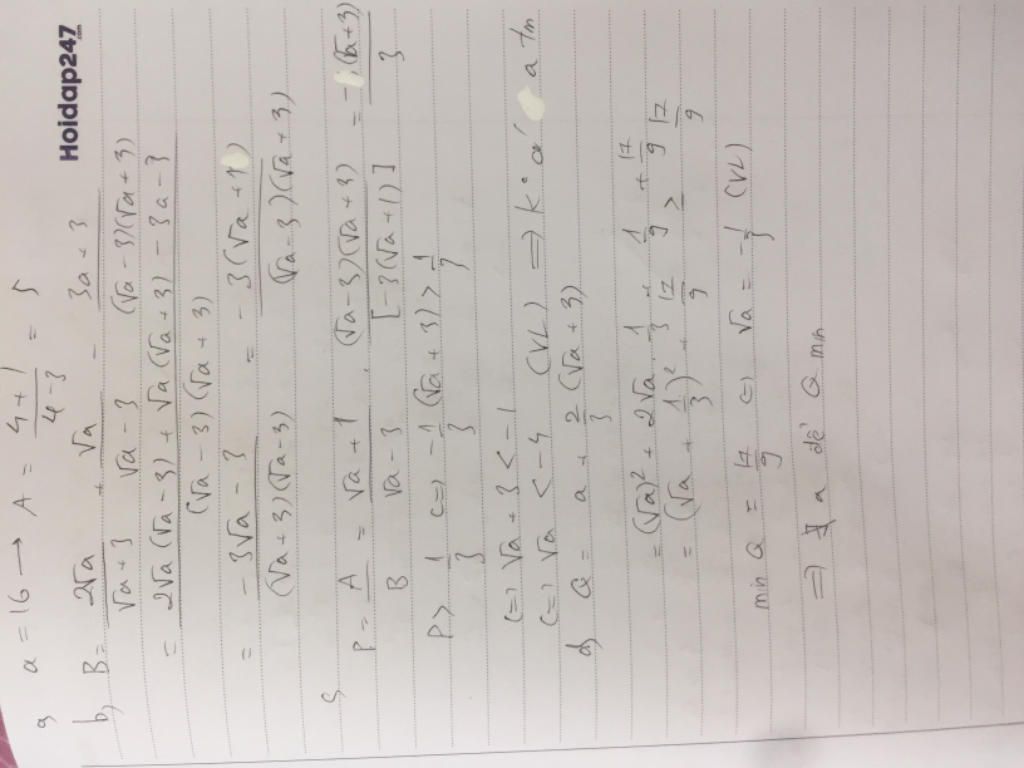 Hoidap247.com
a, a = 16 → A = (4+1)/(4-3) = 5
b, B = 2√a/(√a+3) + √a/(√a-3) - (3a+3)/((√a-3)(√a+3))
= (2√a(√a-3) + √a(√a+3) - 3a-3)/((√a-3)(√a+3))
= (-3√a-3)/((√a+3)(√a-3)) = (-3(√a+1))/((√a-3)(√a+3))
c, P = A/B = (√a+1)/(√a-3) . ((√a-3)(√a+3))/[-3(√a+1)] = -(√a+3)/3
P > 1/3 <=> -1/3 (√a+3) > 1/3
<=> √a+3 < -1
<=> √a < -4 (VL) => k° a' a tm
d, Q = a + 2/3 (√a+3)
= (√a)² + 2√a.1/3 + 1/9 + 17/9
= (√a + 1/3)² + 17/9 ≥ 17/9
min Q = 17/9 <=> √a = -1/3 (VL)
=> ∄ a để Q min